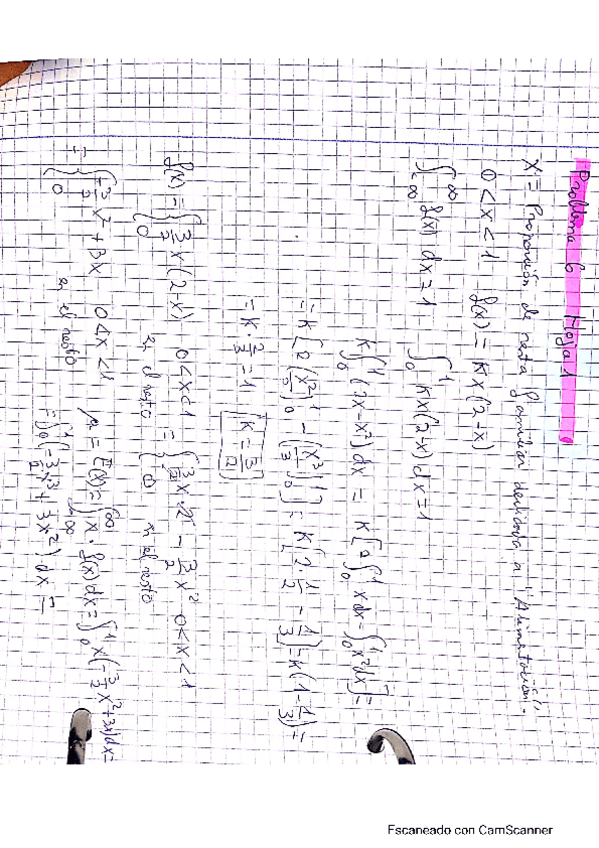 Problema 6 Hoja 1
X = Proporción de renta familiar dedicada a Alimentación".
0 < x < 1 f(x) = Kx(2-x)
∫_{-∞}^{∞} f(x) dx = 1 ∫_0^1 Kx(2-x) dx = 1
K∫_0^1 (2x-x²) dx = K[2∫_0^1 x dx - ∫_0^1 x² dx] =
= K[2(x²/2)_0^1 - (x³/3)_0^1] = K[2·1/2 - 1/3] = K(1-1/3) =
= K·2/3 = 1 K = 3/2
f(x) = { 3/2 x(2-x) 0 < x < 1 = { 3/2 x·2 - 3/2 x² 0 < x < 1
0 en el resto { 0 en el resto
= { -3/2 x² + 3x 0 < x < 1 μ = E(x) = ∫_{-∞}^{∞} x·f(x) dx = ∫_0^1 x(-3/2 x² + 3x) dx =
0 en el resto = ∫_0^1 (-3/2 x³ + 3x²) dx =
Escaneado con CamScanner